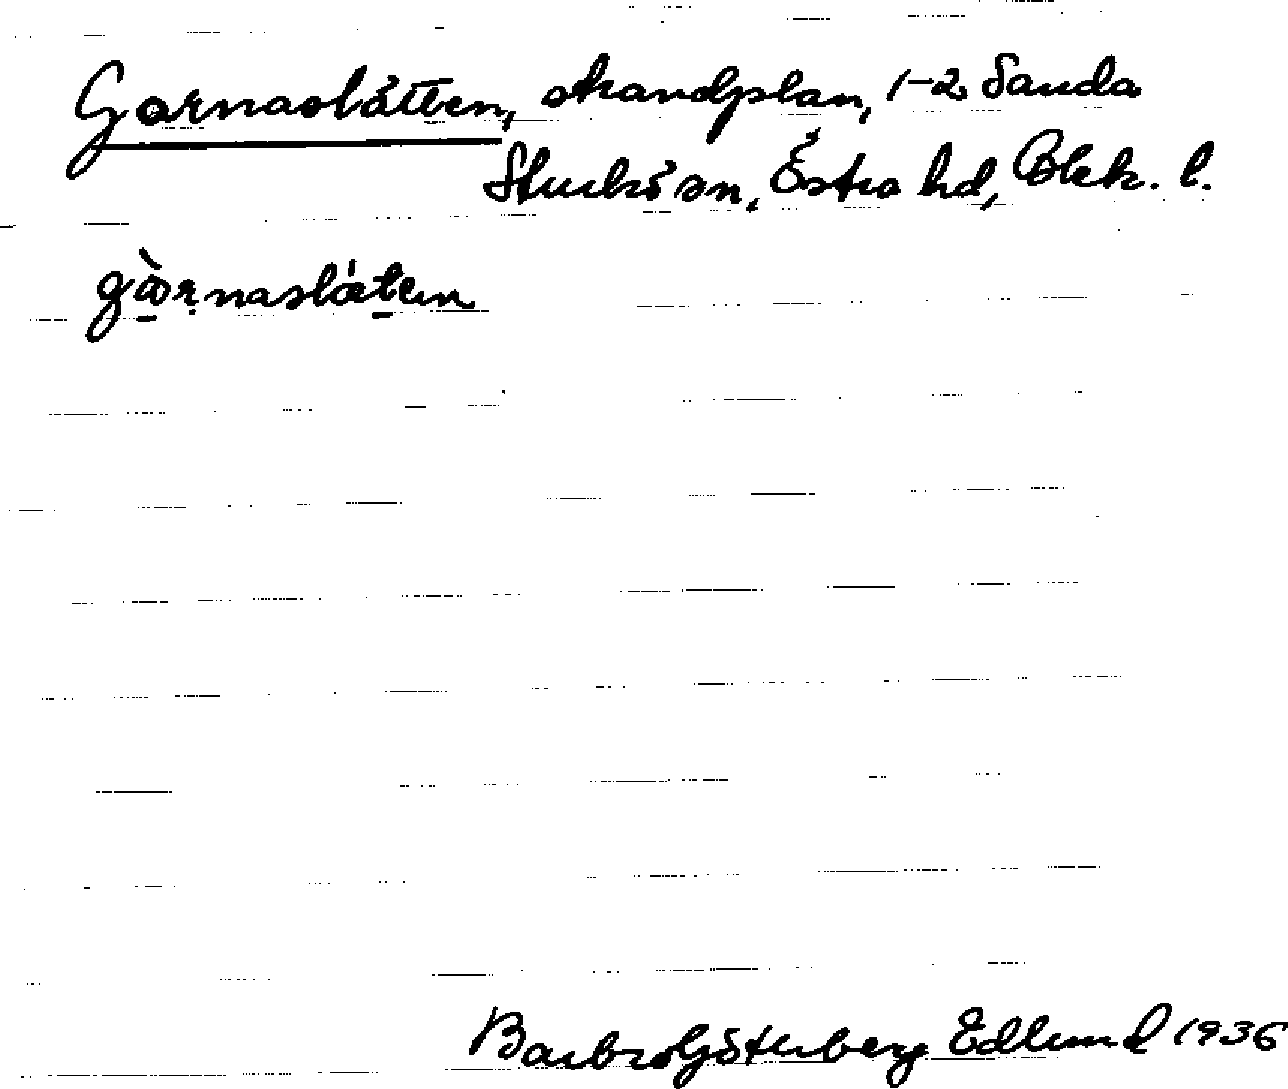 Garnaslätten, strandplan, 1-2 Sanda
Sturkö sn, Östra hd, Blek. l.
gàrnaslǽten
Barbro Göterberg Edlund 1936